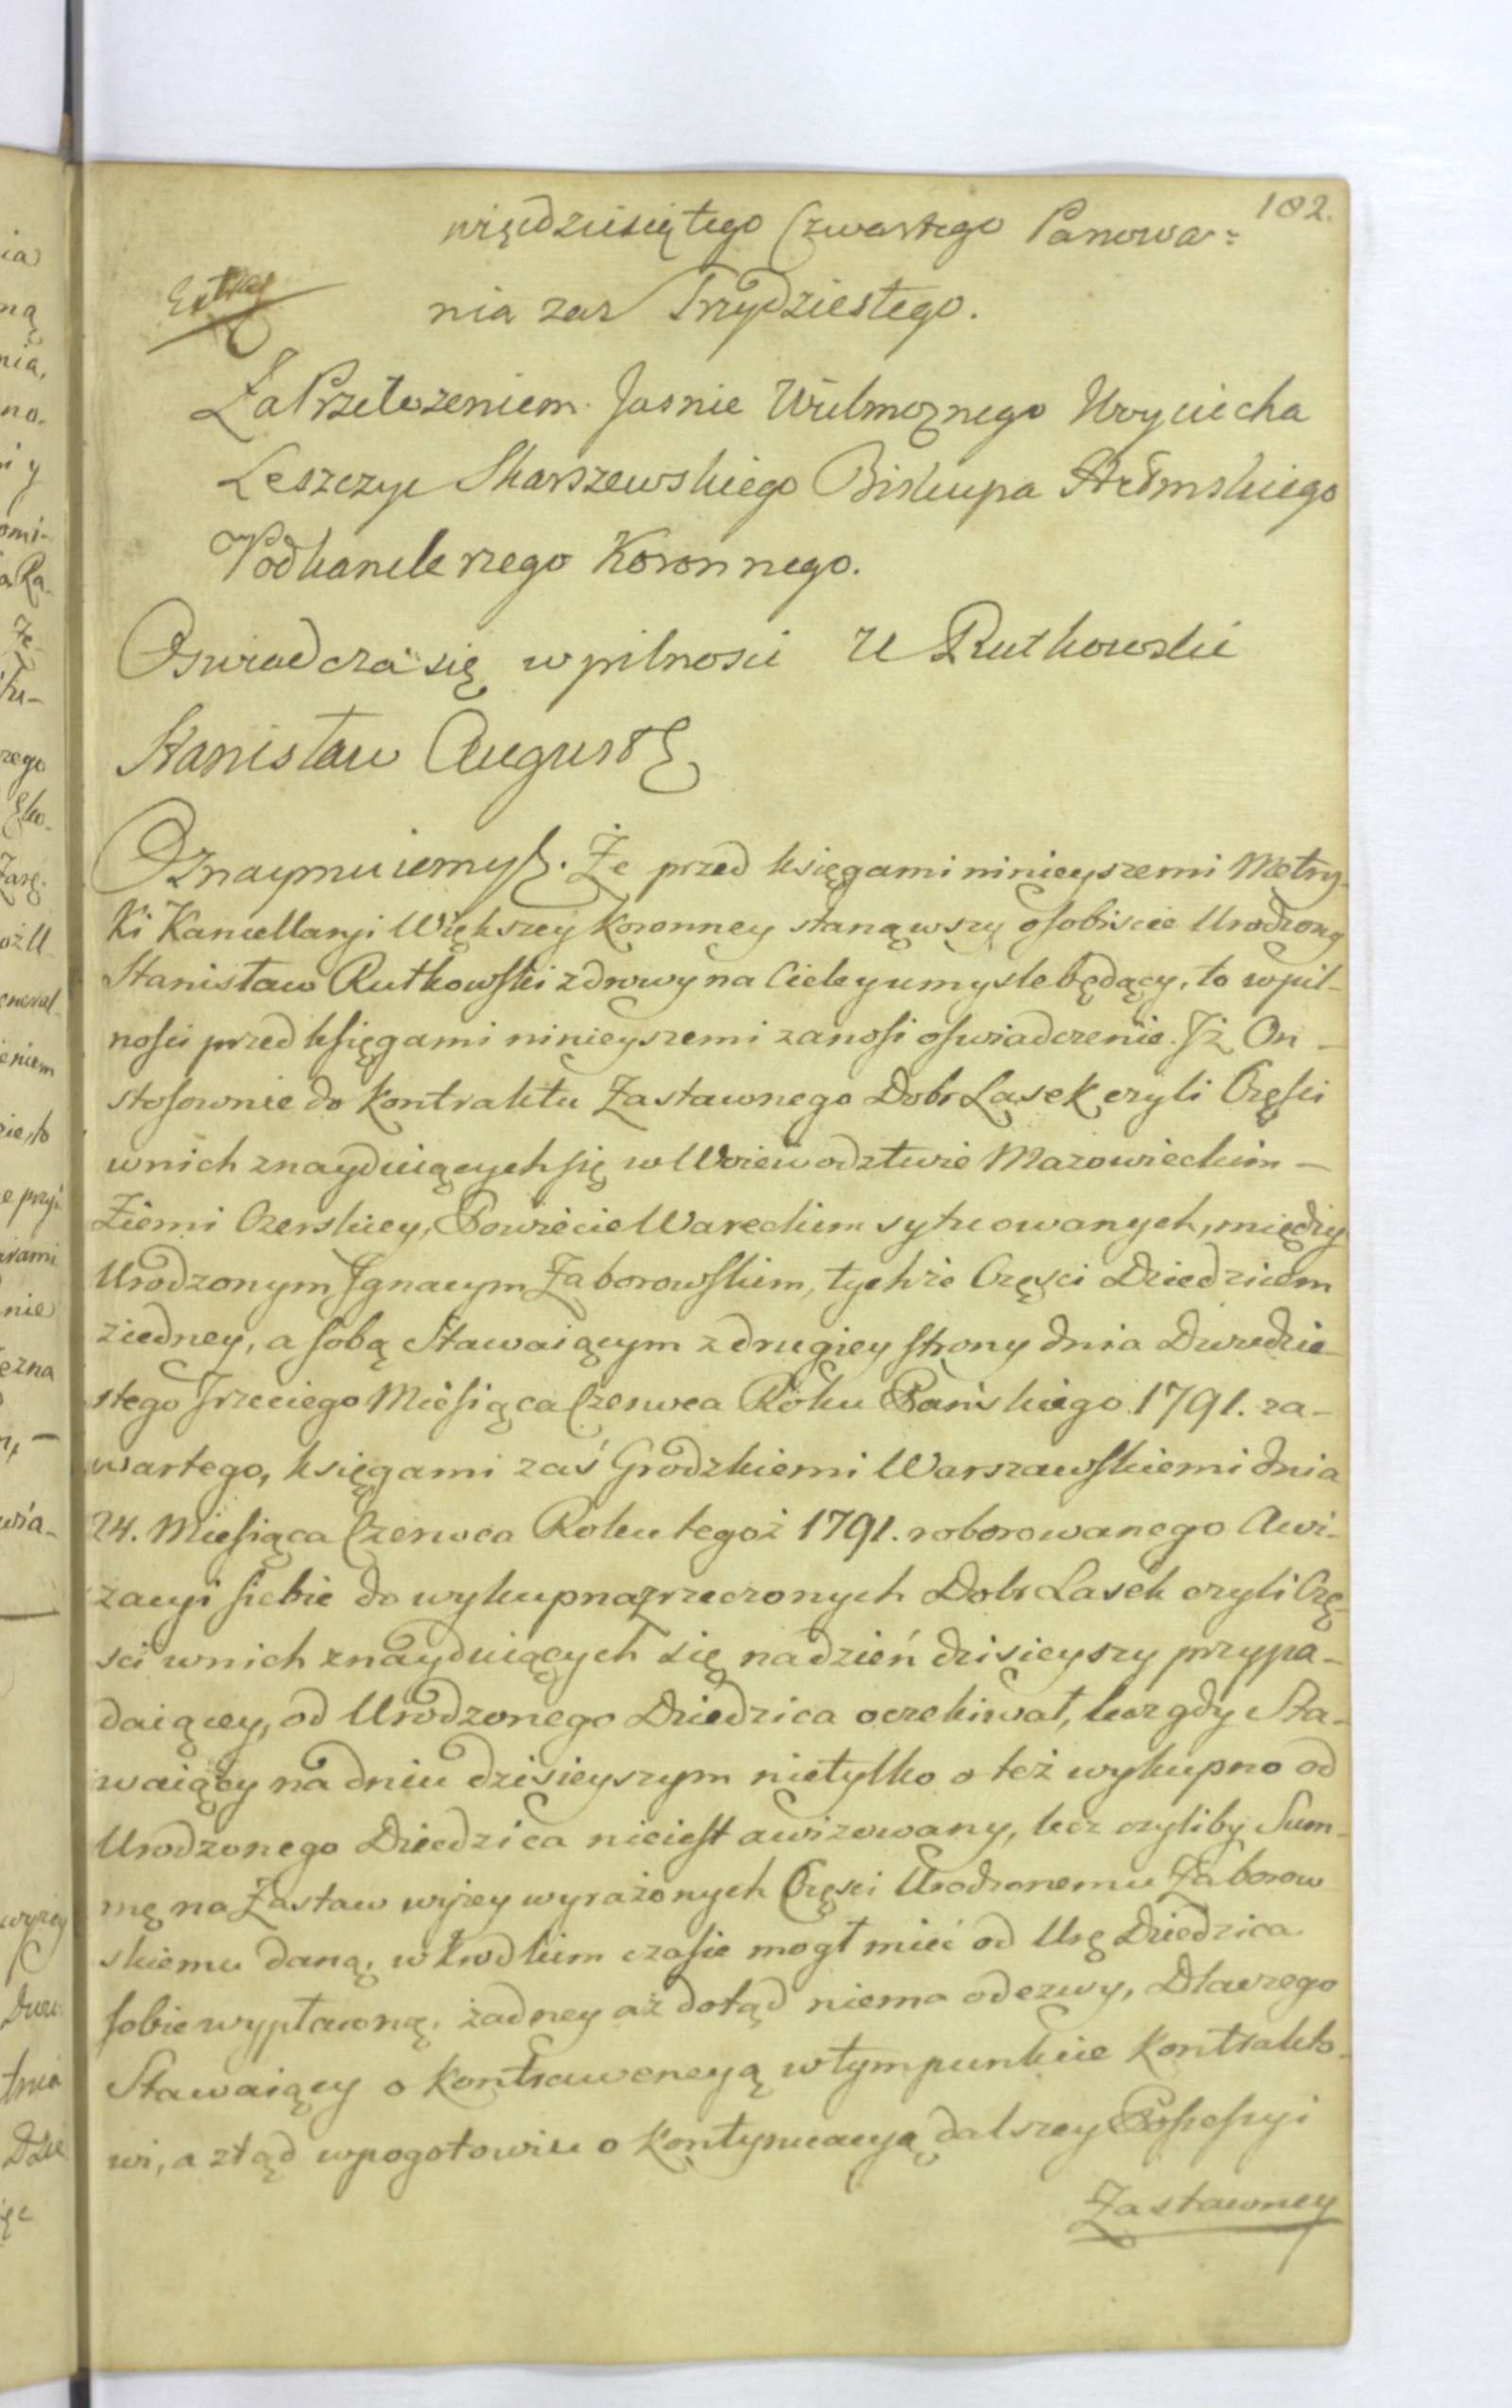 182.
więdziesiętego Czwartego Panowa=
nia zas Trzydziestego.
Extrad
Za Przełożeniem Jasnie Wielmożnego Woyciecha
Leszczyc Skarszewskiego Biskupa Chełmskiego
Podkanclerzego Koronnego.
Oswiadcza się w pilnosci U Rutkowski
Stanisław August
Oznaymuiemy. Że przed księgami ninieyszemi Metry-
ki Kancellaryi Większey Koronney stanąwszy osobiscie Urodzony
Stanisław Rutkowski zdrowy na Ciele y umysle będący, to w pil-
nosci przed księgami ninieyszemi zanosi oswiadczenie. Jż On -
stosownie do Kontraktu Zastawnego Dobr Lasek czyli Częsci
w nich znayduiących się w Woiewodztwie Mazowieckim -
Ziemi Czerskiey, Powiecie Wareckim sytuowanych, między
Urodzonym Jgnacym Zaborowskim, tychże Częsci Dziedzicem
z iedney, a sobą Stawaiącym z drugiey strony dnia Dwudzie-
stego Trzeciego Miesiąca Czerwca Roku Pańskiego 1791. za-
wartego, księgami zaś Grodzkiemi Warszawskiemi dnia
24. Miesiąca Czerwca Roku tegoż 1791. roborowanego Awi-
zacyi siebie do wykupna przerzeczonych Dobr Lasek czyli Czę-
sci w nich znayduiących się na dzień dzisieyszy przypa-
daiącey, od Urodzonego Dziedzica oczekiwał, lecz gdy Sta-
waiący na dniu dzisieyszym nietylko o też wykupno od
Urodzonego Dziedzica nieiest awizowany, lecz czyliby Sum-
mę na Zastaw wyżey wyrażonych Częsci Urodzonemu Zaborow
skiemu daną, w krotkim czasie mogł mieć od Urg Dziedzica
sobie wypłaconą, żadney aż dotąd niema odezwy, Dlaczego
Stawaiący o Kontrawencyą w tym punkcie Kontrakto-
wi, a ztąd w pogotowiu o Kontynuacyą dalszey Possessyi
Zastawney